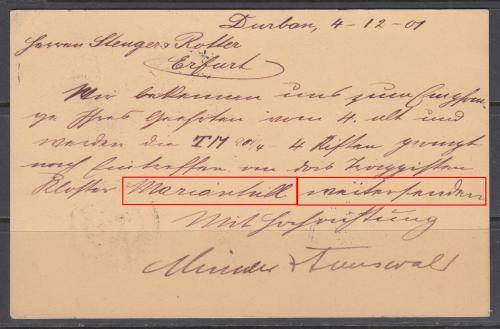 Durban, 4-12-01
Herren Stenger & Rotter
Erfurt
Wir bekennen uns zum Empfan-
ge Ihres Geehrten vom 4. ult und
werden die TM 4 Kisten prompt
nach Eintreffen an das Trappisten
Kloster Marianhill weitersenden
Mit Hochachtung